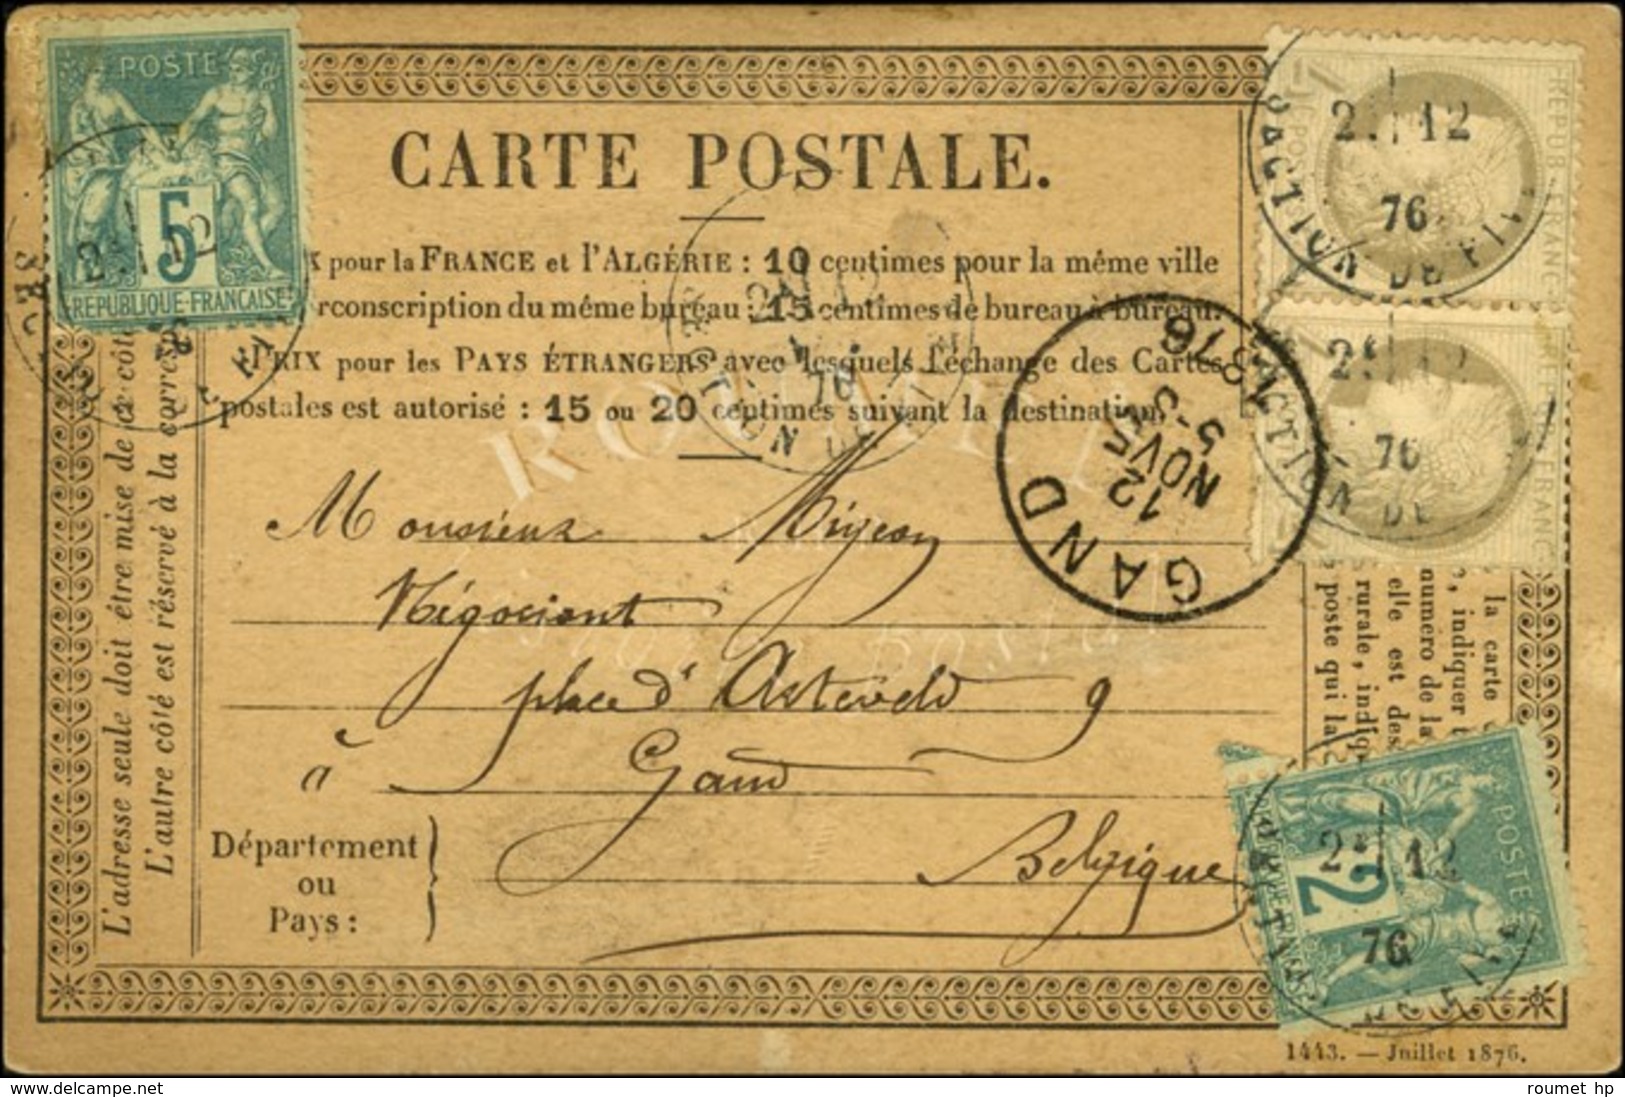 CARTE POSTALE.
pour la FRANCE et l'ALGÉRIE : 10 centimes pour la même ville
rconscription du même bureau : 15 centimes de bureau à bureau.
PRIX pour les PAYS ÉTRANGERS avec lesquels l'échange des Cartes
postales est autorisé : 15 ou 20 centimes suivant la destination.
POSTE
5
REPUBLIQUE-FRANÇAISE
2 12
76
2 12
76
GAND
12
NOV 5
5-S
1876
L'adresse seule doit être mise de ce côté
L'autre côté est réservé à la corresp
Monsieur Migeon
Négociant
place d'Asteveld 9
à Gand
Département
ou
Pays :
Belgique
la carte
e, indiquer
numéro de la
elle est des
rurale, indiq
poste qui la
POSTE
2
2 12
76
1443. — Juillet 1876.
ROUMET
histoire postale
roumet hp